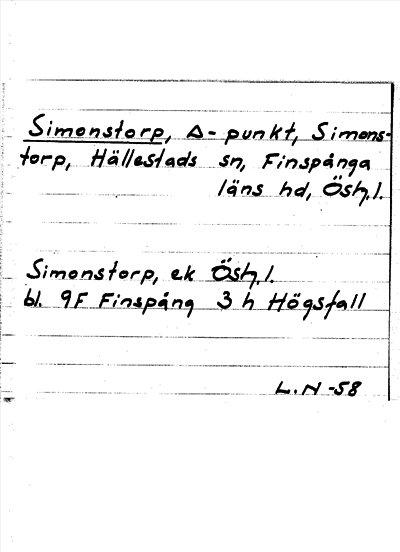 Simonstorp, Δ-punkt, Simons-
torp, Hällestads sn, Finspånga
läns hd, Östg.l.
Simonstorp, ek Östg.l.
bl. 9F Finspång 3 h Högsfall
L.N -58